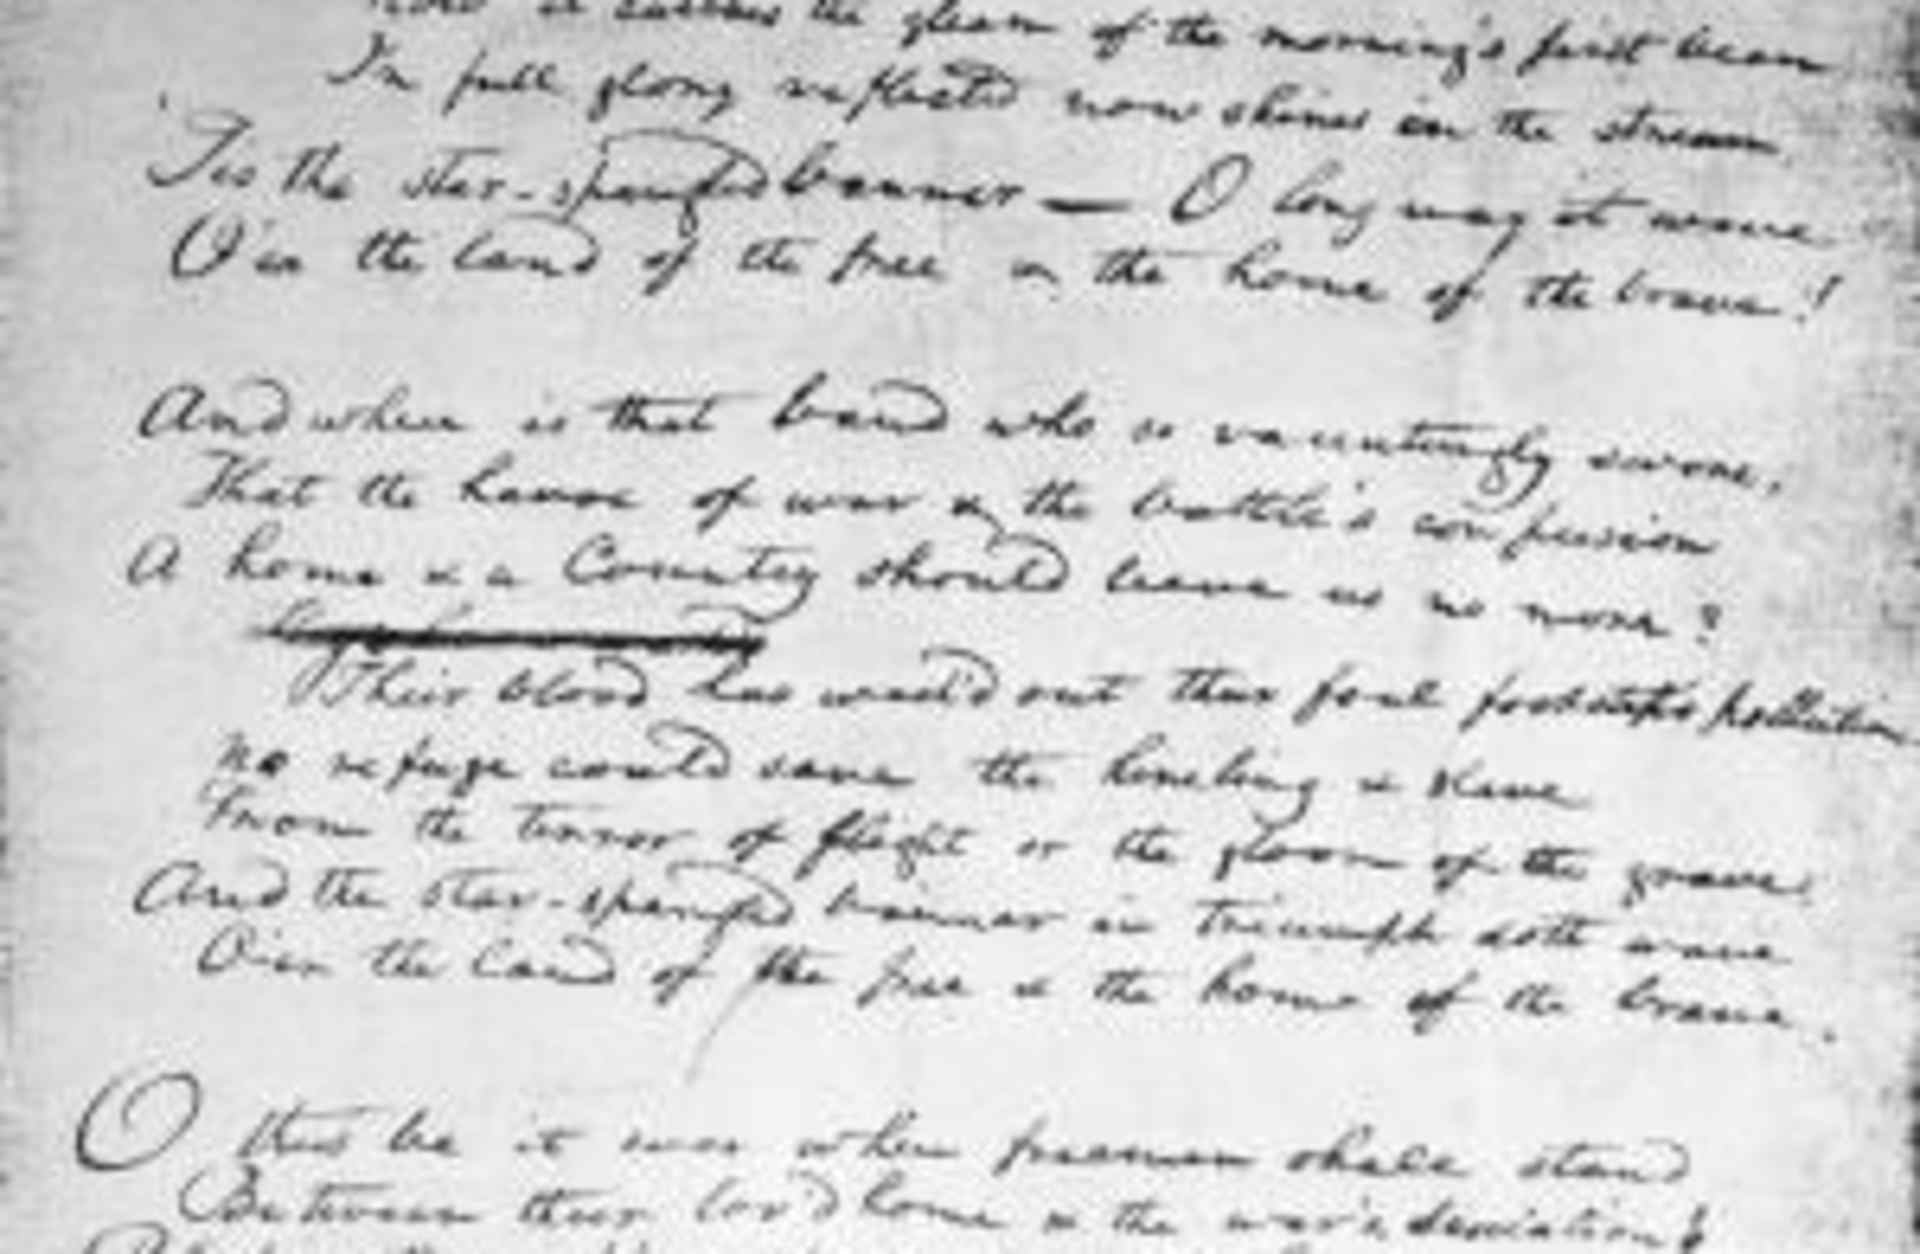 Now it catches the gleam of the morning's first beam
In full glory reflected now shines in the stream
'Tis the star-spangled banner — O long may it wave
O'er the land of the free & the home of the brave!
And where is that band who so vauntingly swore,
That the havoc of war & the battle's confusion
A home & a Country should leave us no more?
Their blood has wash'd out their foul footsteps pollution
No refuge could save the hireling & slave
From the terror of flight or the gloom of the grave
And the star-spangled banner in triumph doth wave
O'er the land of the free & the home of the brave.
O thus be it ever when freemen shall stand
Between their lov'd home & the war's desolation!